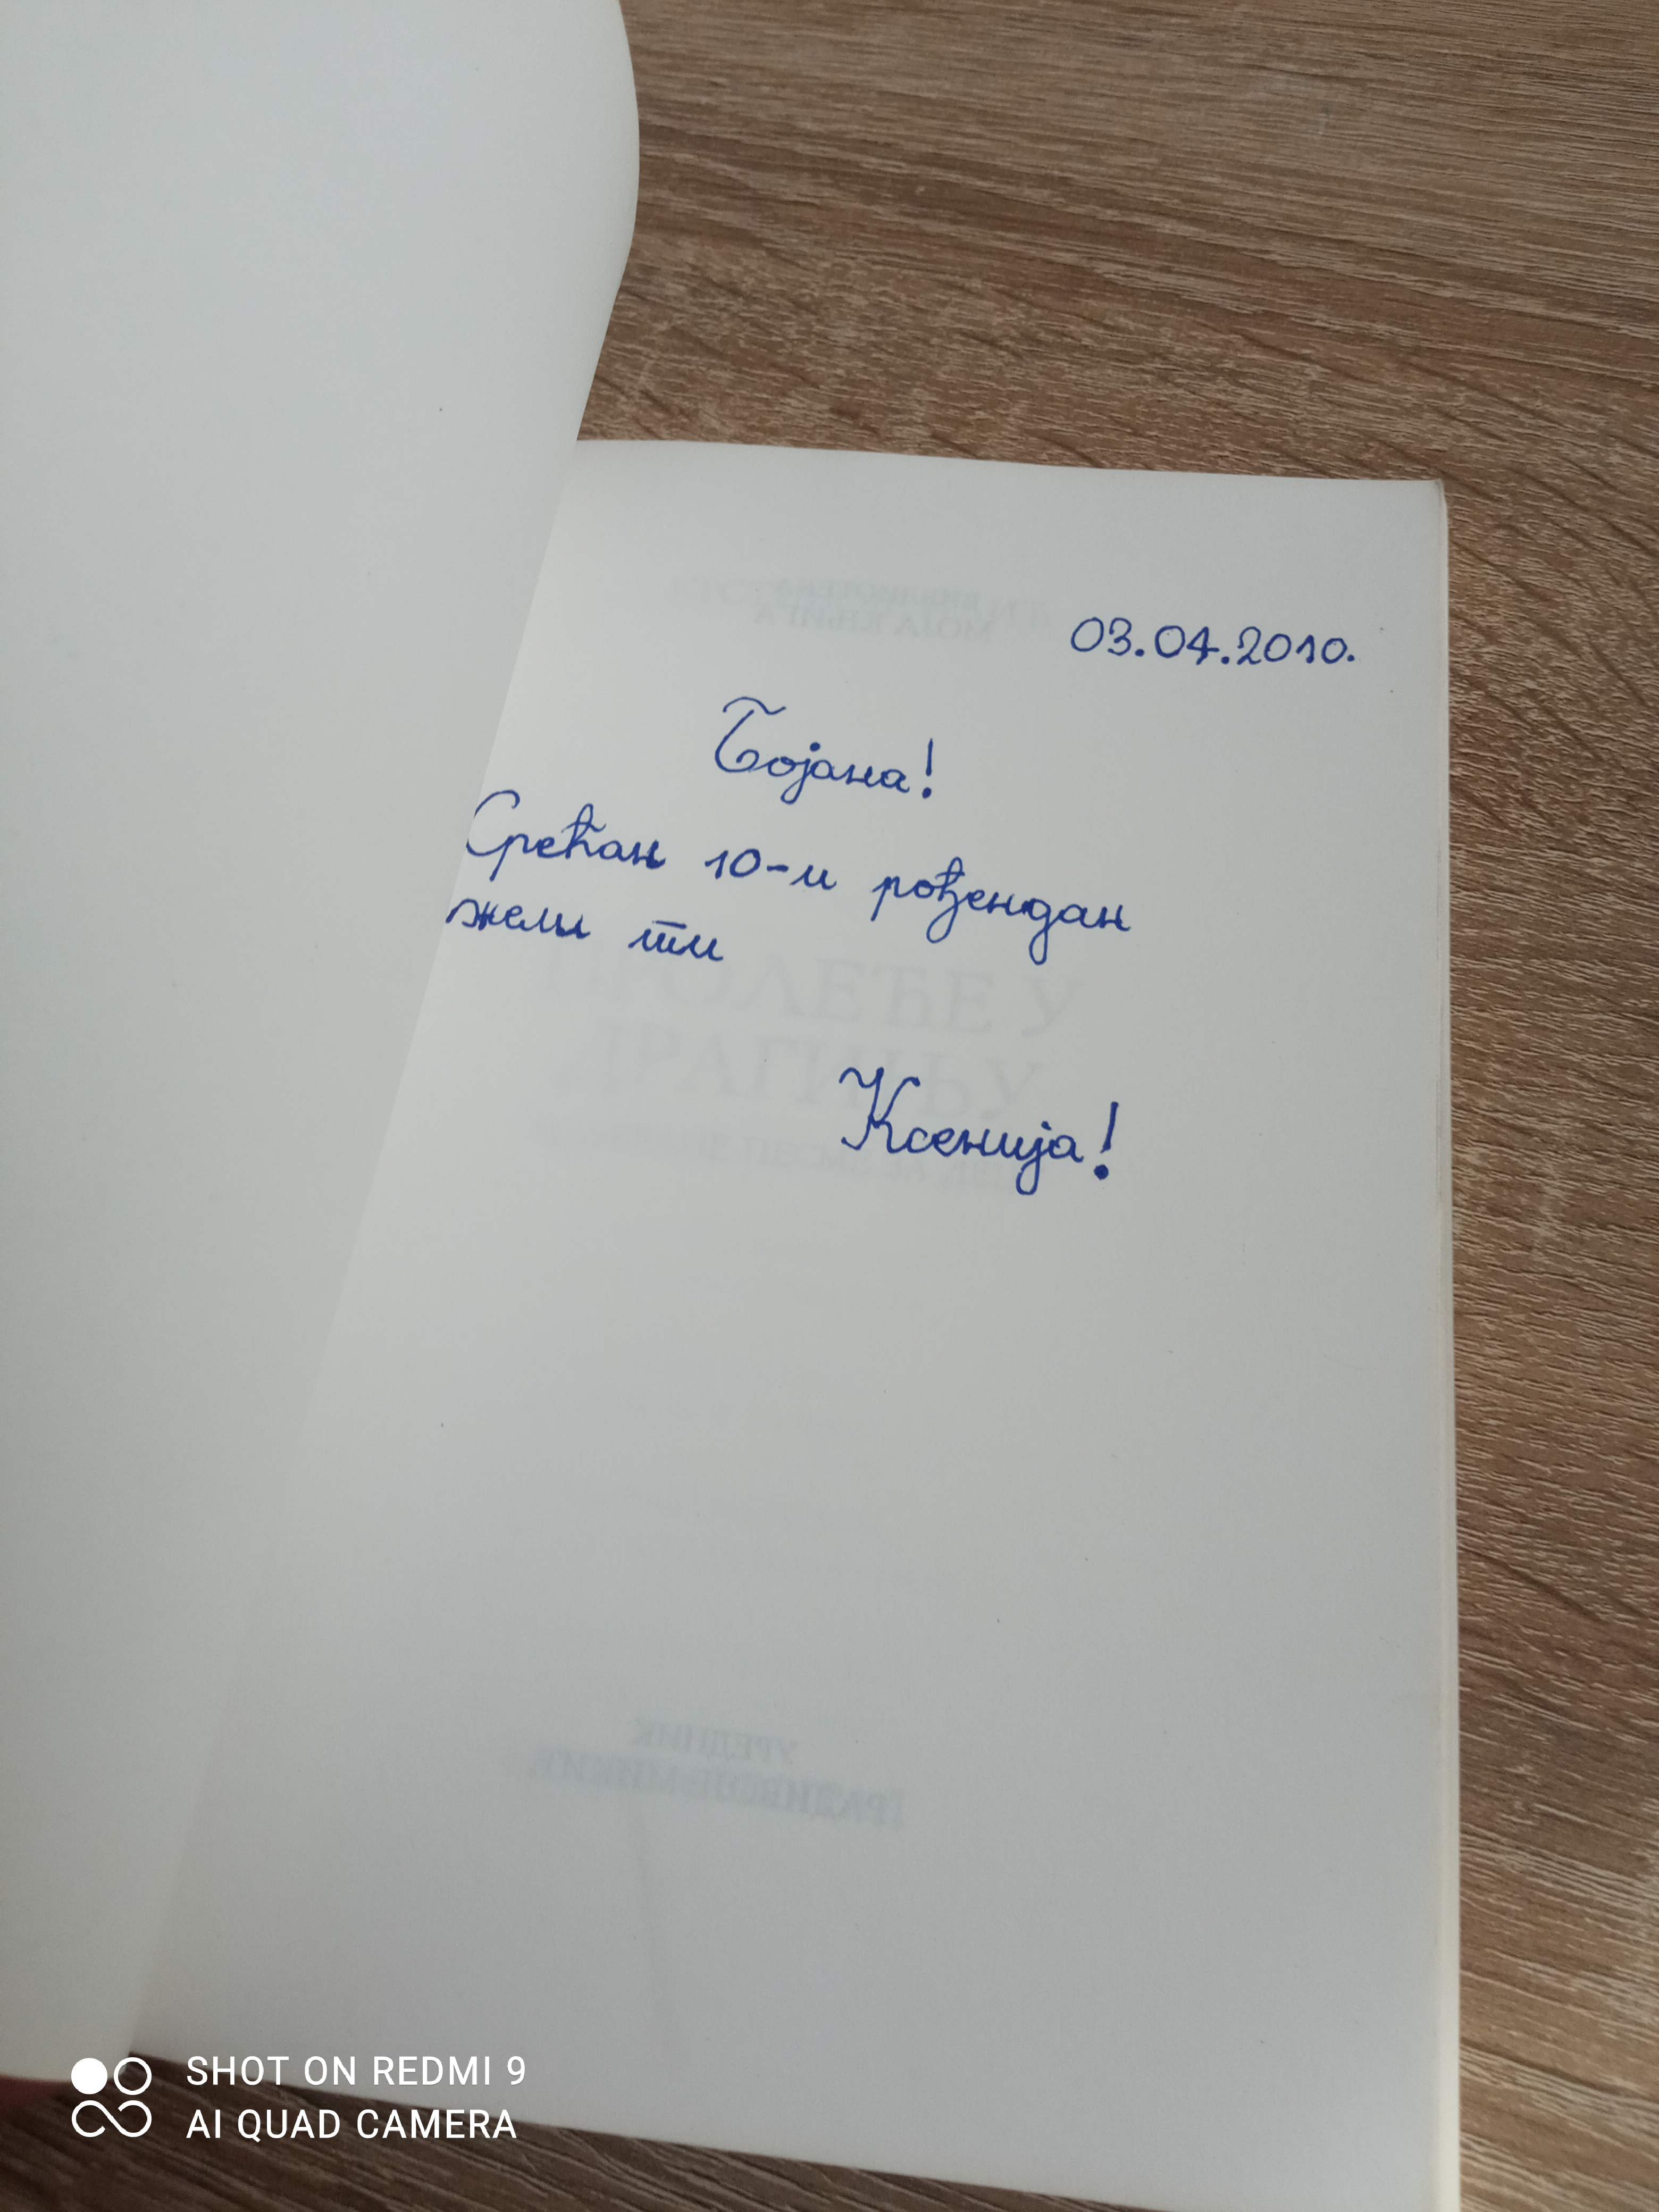 03.04.2010.
Бојана!
Срећан 10-и рођендан
жели ти
ПРОЛЕЋЕ У
ДРАГИЊУ
Ксенија!
УРЕДНИК
SHOT ON REDMI 9
AI QUAD CAMERA